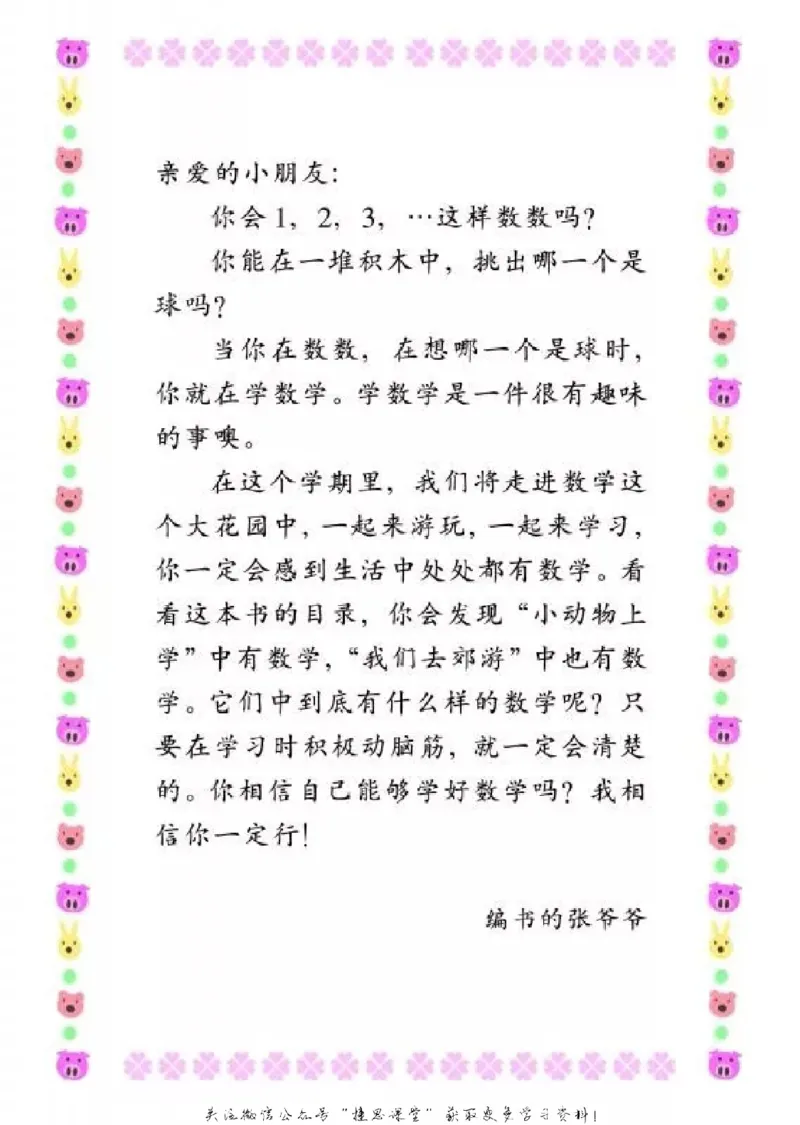 亲爱的小朋友：
你会1，2，3，…这样数数吗？
你能在一堆积木中，挑出哪一个是
球吗？
当你在数数，在想哪一个是球时，
你就在学数学。学数学是一件很有趣味
的事噢。
在这个学期里，我们将走进数学这
个大花园中，一起来游玩，一起来学习，
你一定会感到生活中处处都有数学。看
看这本书的目录，你会发现“小动物上
学”中有数学，“我们去郊游”中也有数
学。它们中到底有什么样的数学呢？只
要在学习时积极动脑筋，就一定会清楚
的。你相信自己能够学好数学吗？我相
信你一定行！
编书的张爷爷
关注微信公众号“捷思课堂”获取更多学习资料！